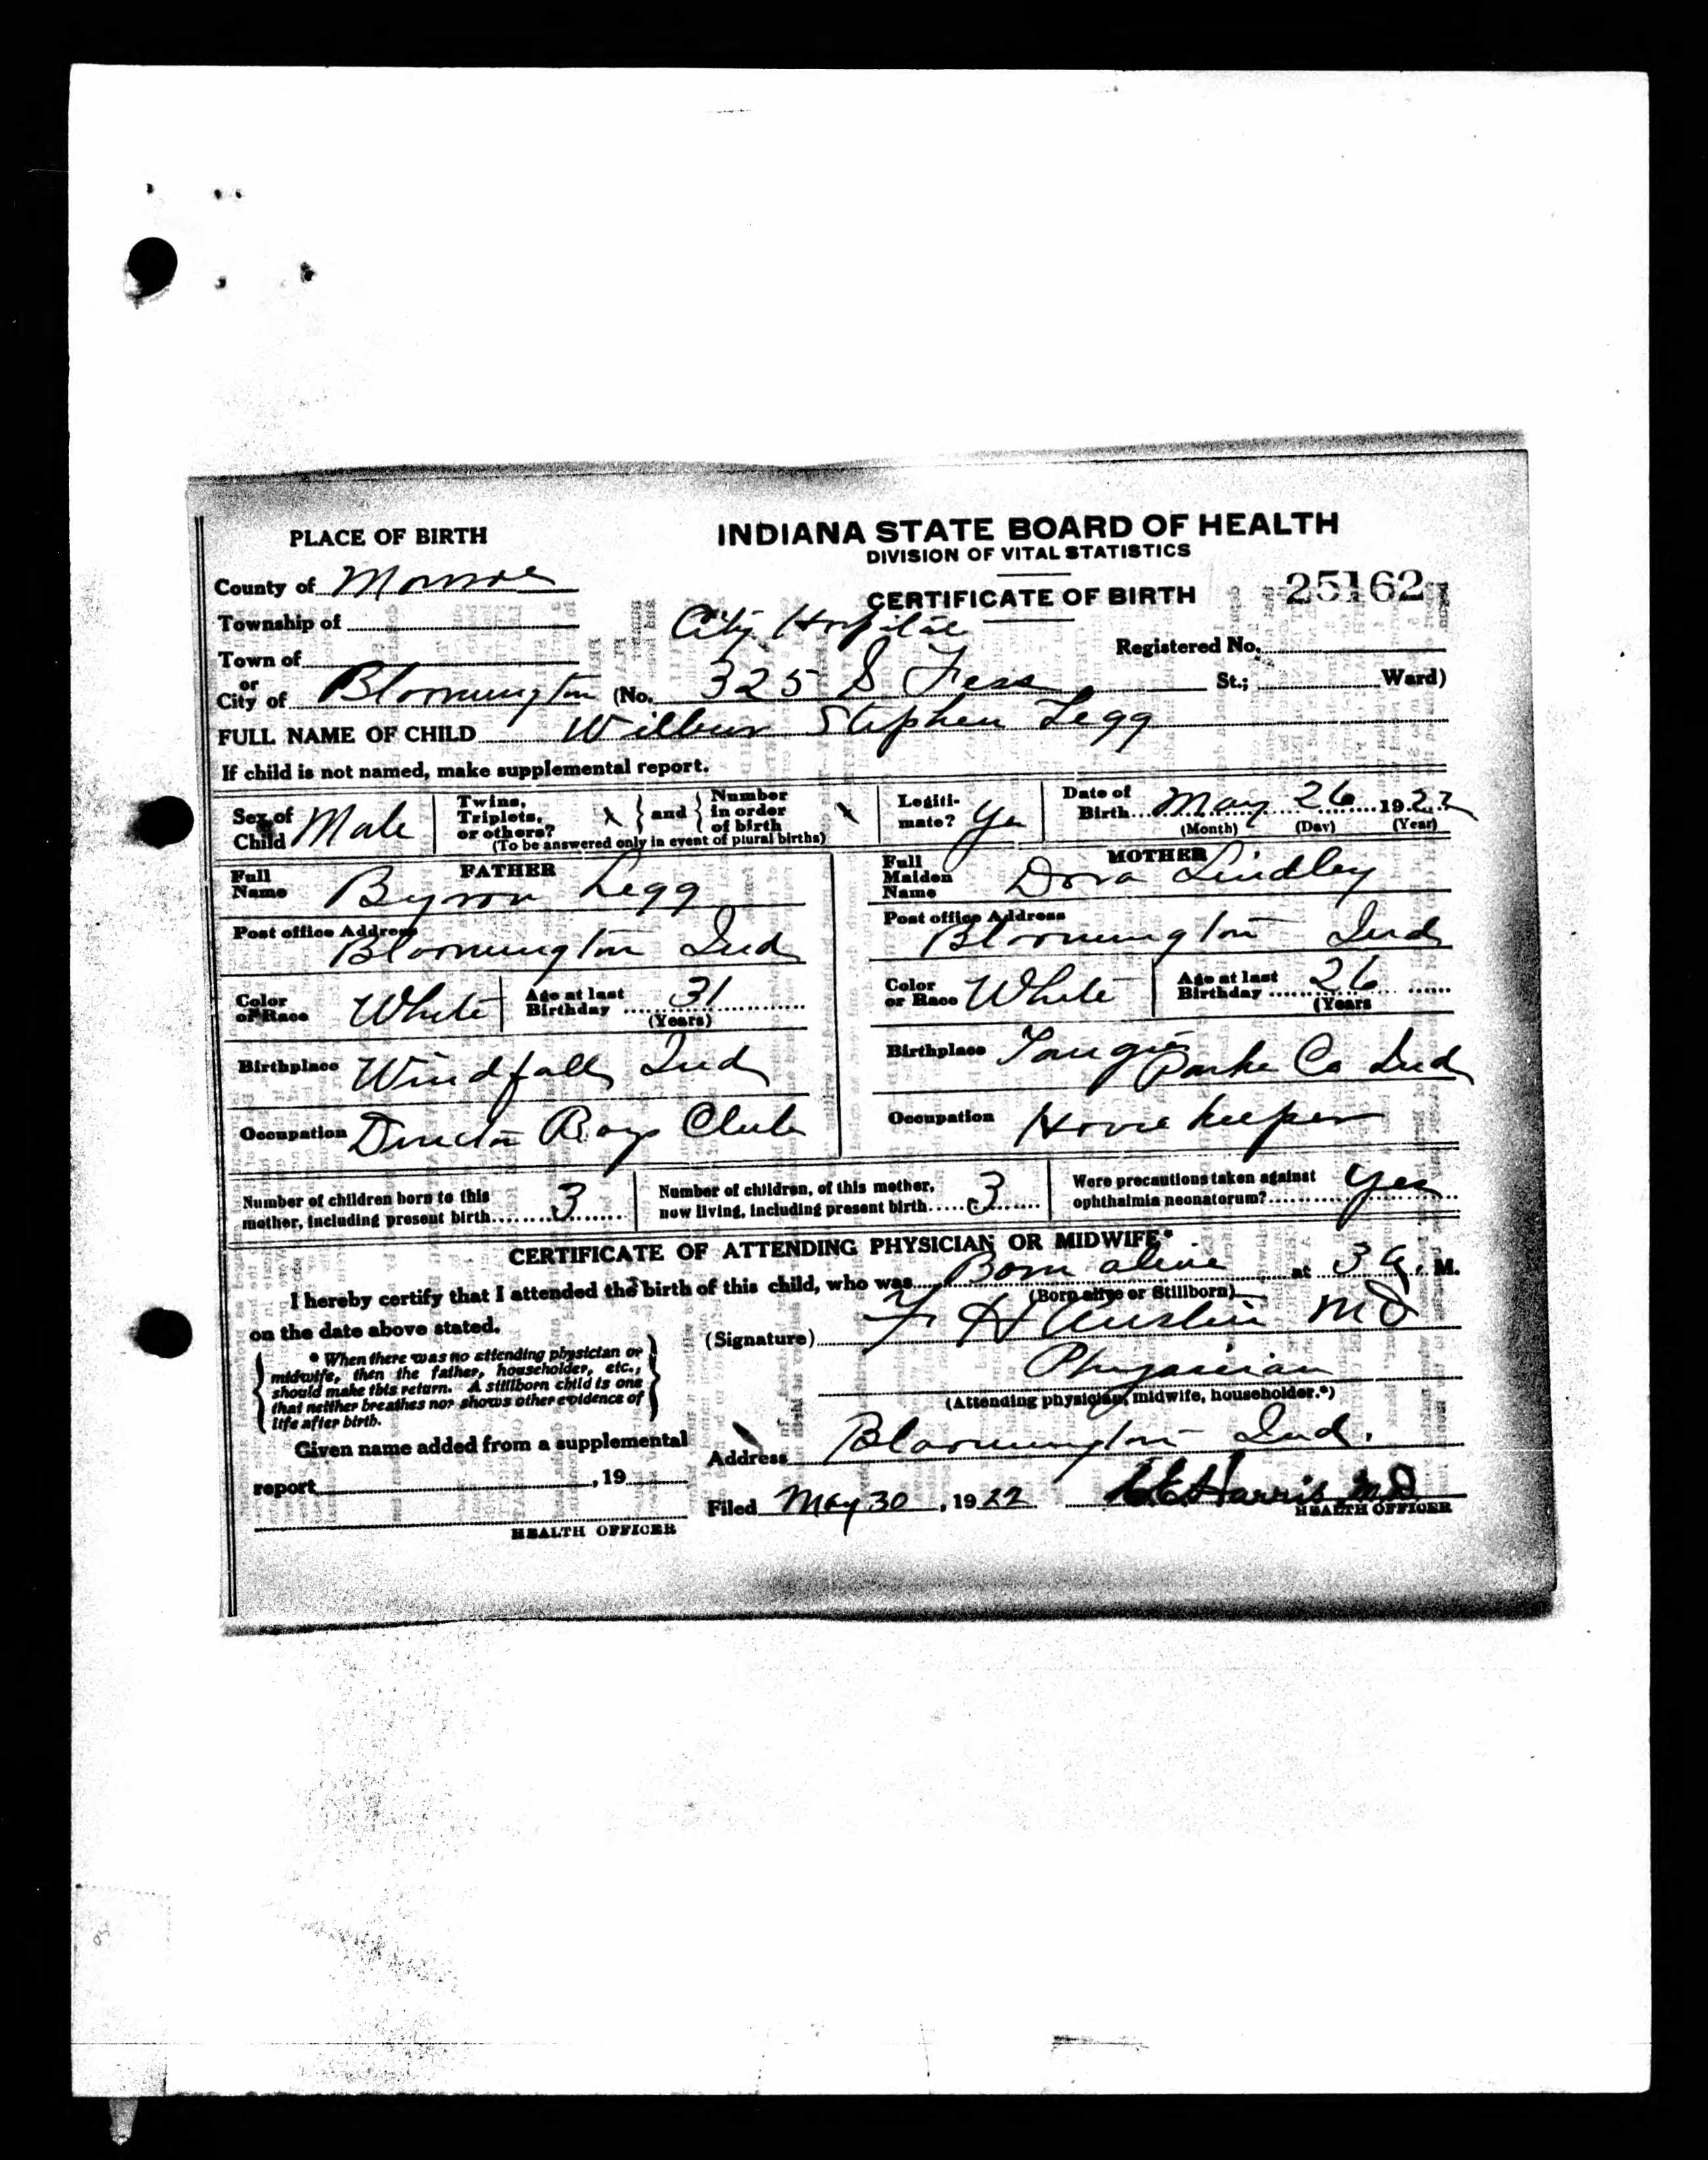 PLACE OF BIRTH
INDIANA STATE BOARD OF HEALTH
DIVISION OF VITAL STATISTICS
County of Monroe
CERTIFICATE OF BIRTH 25162
Township of
City Hospital
Registered No.
Town of
or
City of Bloomington (No. 325 S Fess St.; Ward)
FULL NAME OF CHILD Wilbur Stephen Legg
If child is not named, make supplemental report.
Sex of Child Male
Twins, Triplets, or others? x and Number in order of birth x
(To be answered only in event of plural births)
Legiti-mate? Yes
Date of Birth May 26 1922
(Month) (Day) (Year)
FATHER
Full Name Byron Legg
Post office Address Bloomington Ind
Color or Race White
Age at last Birthday 31
(Years)
Birthplace Windfall, Ind
Occupation Director Boys Club
MOTHER
Full Maiden Name Dora Lindley
Post office Address Bloomington Ind
Color or Race White
Age at last Birthday 26
(Years
Birthplace Parke Co Ind
Occupation Housekeeper
Number of children born to this mother, including present birth 3
Number of children, of this mother, now living, including present birth 3
Were precautions taken against ophthalmia neonatorum? Yes
CERTIFICATE OF ATTENDING PHYSICIAN OR MIDWIFE*
I hereby certify that I attended the birth of this child, who was Born alive at 3 a. M.
(Born alive or Stillborn)
on the date above stated.
(Signature) F H Austin MD
* When there was no attending physician or
midwife, then the father, householder, etc.,
should make this return. A stillborn child is one
that neither breathes nor shows other evidence of
life after birth.
Physician
(Attending physician, midwife, householder.*)
Given name added from a supplemental
report , 19
HEALTH OFFICER
Address Bloomington Ind.
Filed May 30, 1922 C E Harris MD
HEALTH OFFICER